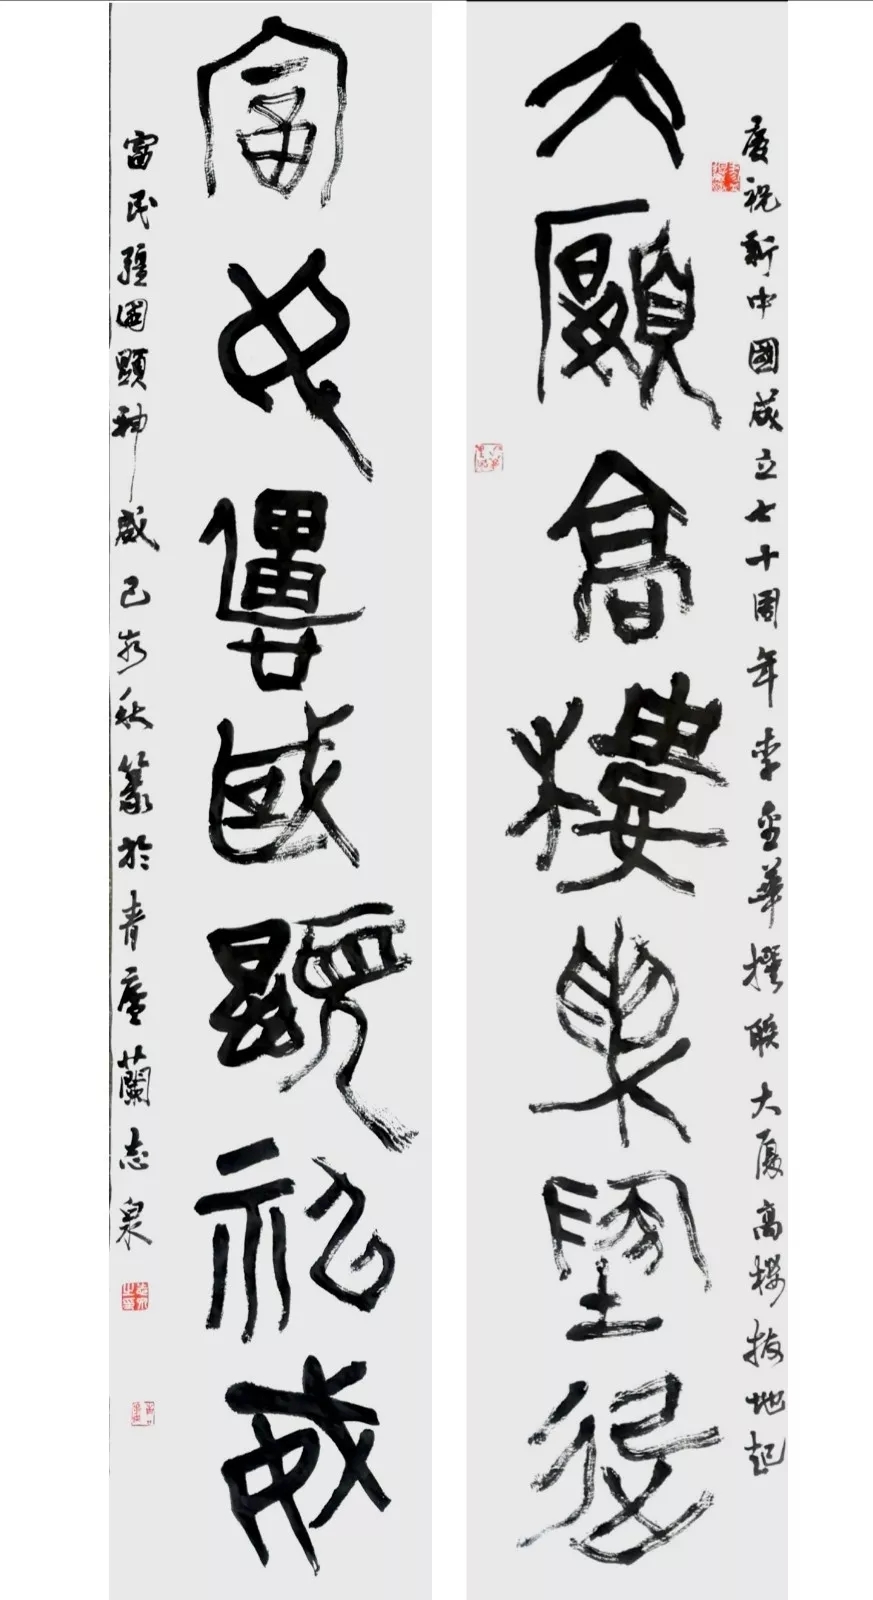 慶祝新中國成立七十周年李金華撰联大厦高楼拔地起
大厦高樓拔地起
富民彊國顯神威
富民彊國顯神威己亥秋篆於青廬蘭志泉